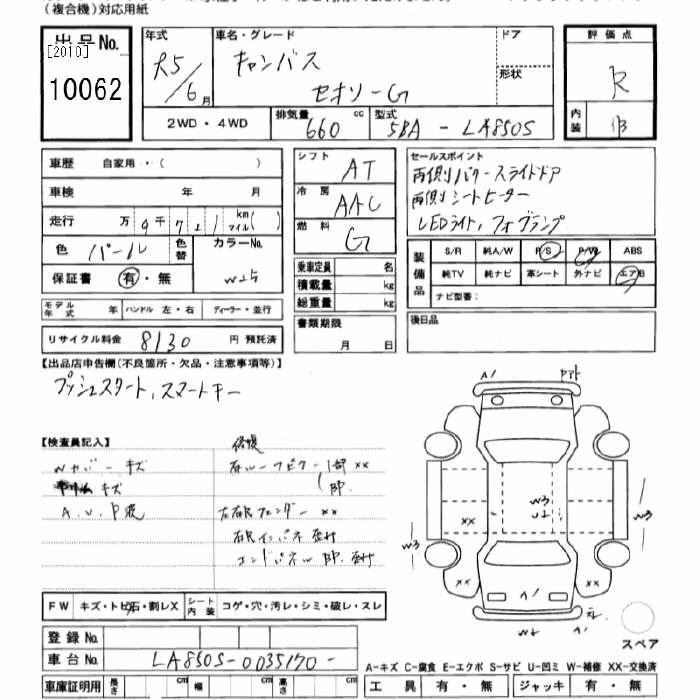 (複合機)対応用紙
出品No.
[2010]
10062
年式
R5/6月
車名・グレード
キャンバス
セオリーG
ドア
形状
評価点
R
内装
B
2WD・4WD
排気量
660 cc
型式
5BA - LA850S
車歴 自家用・( )
車検 年 月
走行 万 9千7百1 km マイル( )
色 パール
色替
カラーNo.
W25
保証書 有・無
モデル年式 年
ハンドル 左・右
ディーラー・並行
リサイクル料金 8130 円 預託済
シフト AT
冷房 AAC
燃料 G
乗車定員 名
積載量 kg
総重量 kg
書類期限
月 日
セールスポイント
両側パワースライドドア
両側シートヒーター
LEDライト、フォグランプ
装備品
S/R 純A/W P/S P/W ABS
純TV 純ナビ 革シート 外ナビ エアB
ナビ型番:
後日品
【出品店申告欄(不良箇所・欠品・注意事項等)】
プッシュスタート、スマートキー
【検査員記入】
Wカバーキズ
キズ
A.U.P波
修復
右ルーフピラー1部 xx
1部
左右Rフェンダー xx
右Rインパネ 歪付
エンドパネル 1部 歪付
A1
W3
W3
U2
xx
W3
xx
xx
A1
W2
FW キズ・トビ石・割レX
シート内装 コゲ・穴・汚レ・シミ・破レ・スレ
登録No.
車台No. LA850S-0035170-
車庫証明用 長さ cm 幅 cm 高さ cm
スペア
A-キズ C-腐食 E-エクボ S-サビ U-凹ミ W-補修 XX-交換済
工具 有・無 ジャッキ 有・無